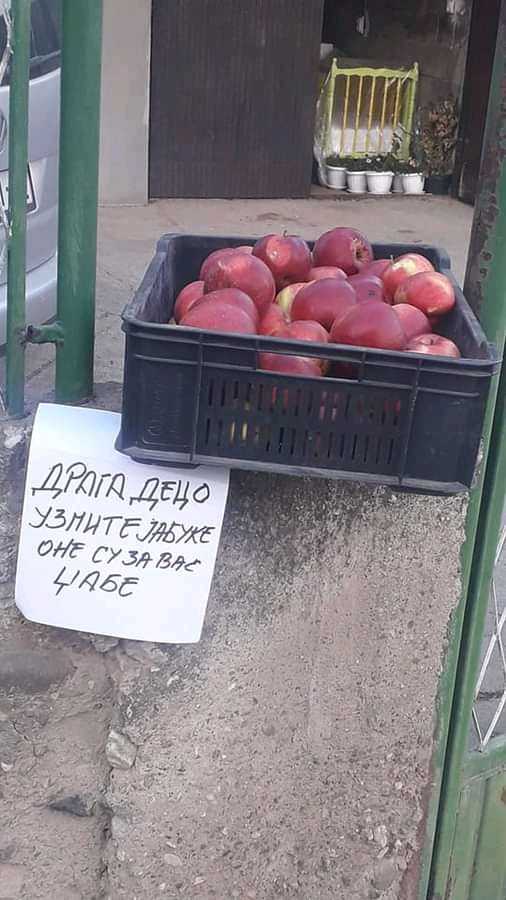 ДРАГА ДЕЦО
УЗМИТЕ ЈАБУКЕ
ОНЕ СУ ЗА ВАС
ЏАБЕ